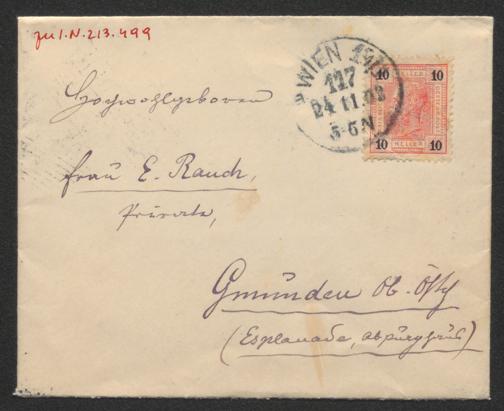 zu I.N. 213.499
WIEN
117
24.11.03
5-6N
10 10
HELLER
10 10
Hochwohlgeboren
Frau E. Rauch,
Private,
Gmünden Ob. Öst.
(Esplanade,